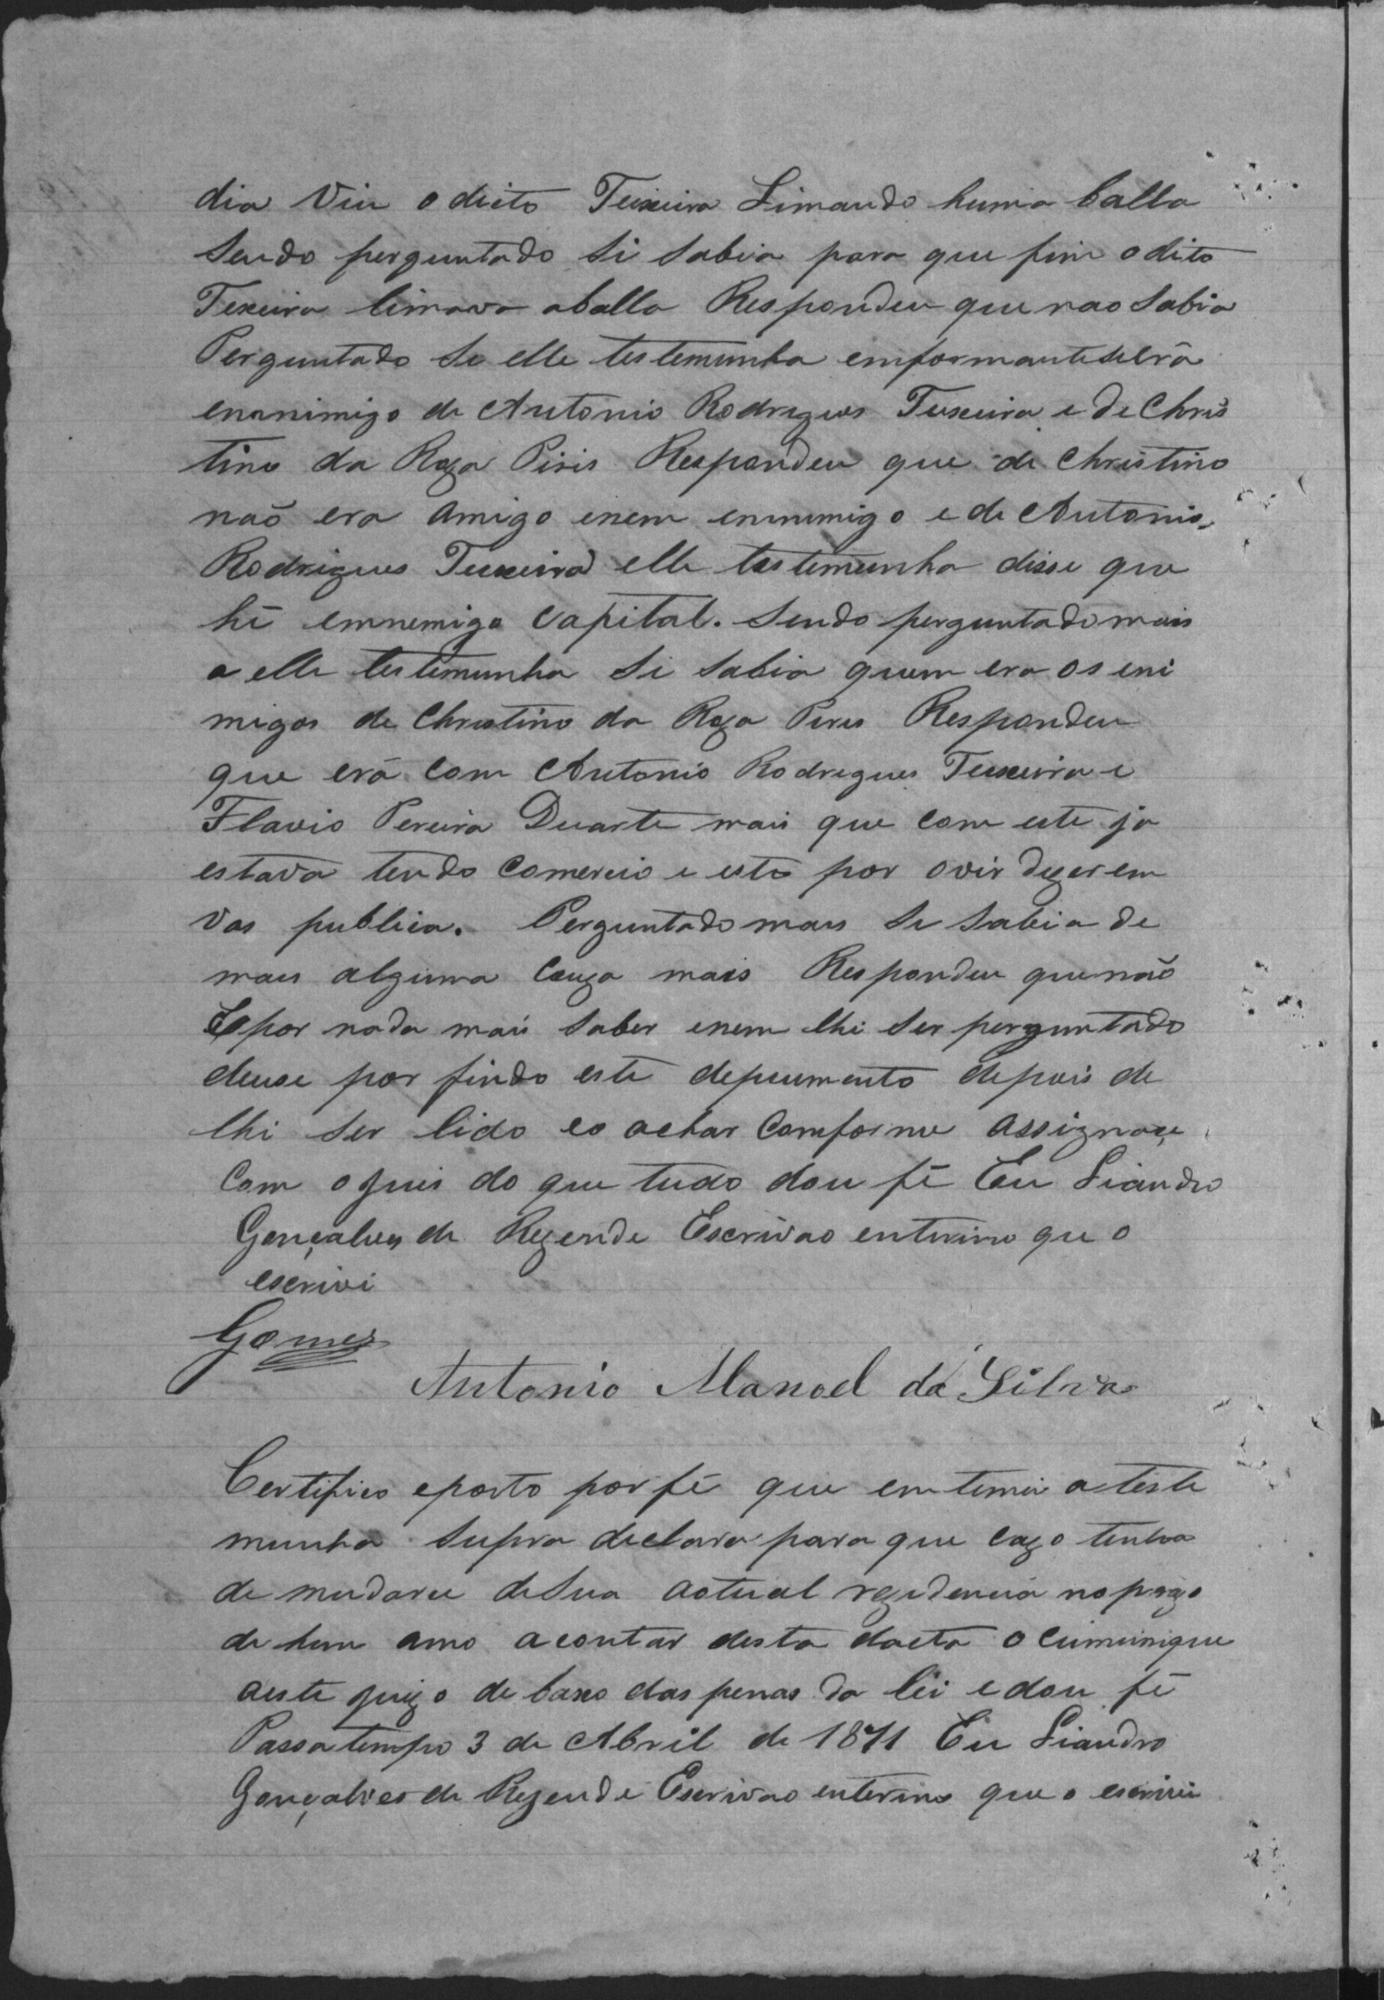 dia Viu o dicto Teixeira Limando huma balla
Sendo perguntado si sabia para que fim o dito
Texeira limava aballa Respondeu que nao Sabia
Perguntado se elle testemunha emformante
enanimigo de Antonio Rodrigues Teixeira e de Chris
tino da Roza Piris Respondeu que de Christino
naõ era amigo enem enimmigo e de Antonio
Rodrigues Teixeira elle testemunha disse que
hé emnemigo Capital. Sendo perguntado mais
a elle testemunha si sabia quem era os eni
migos de Christino da Roza Pires Respondeu
que erã com Antonio Rodrigues Teixeira e
Flavio Pereira Duarte mais que com este ja
estava tendo Comercio e esto por ovir dizer em
Vos publica. Perguntado mais Si Sabia de
mais alguma Couza mais Respondeu que não
E por nada mais saber enem lhi ser perguntado
deuse por findo este depuimento depois de
lhi ser lido eo achar Comforme assignaçe
Com o juis do que tudo dou fé Eu Liandro
Gonçalves de Rezende Escrivao enterino que o
escrivi
Gomes
Antonio Manoel da Silva
Certifico eporto por fé que entemei a teste
munha supra declara para que cazo tenha
de mudarce de sua actual rezidencia no prazo
de hum anno acontar desta dacta o cumunique
aeste juizo de baxo das penas da lei e dou fé
Passatempo 3 de Abril de 1871 Eu Liandro
Gonçalves de Rezende Escrivao enterino que o escrivi